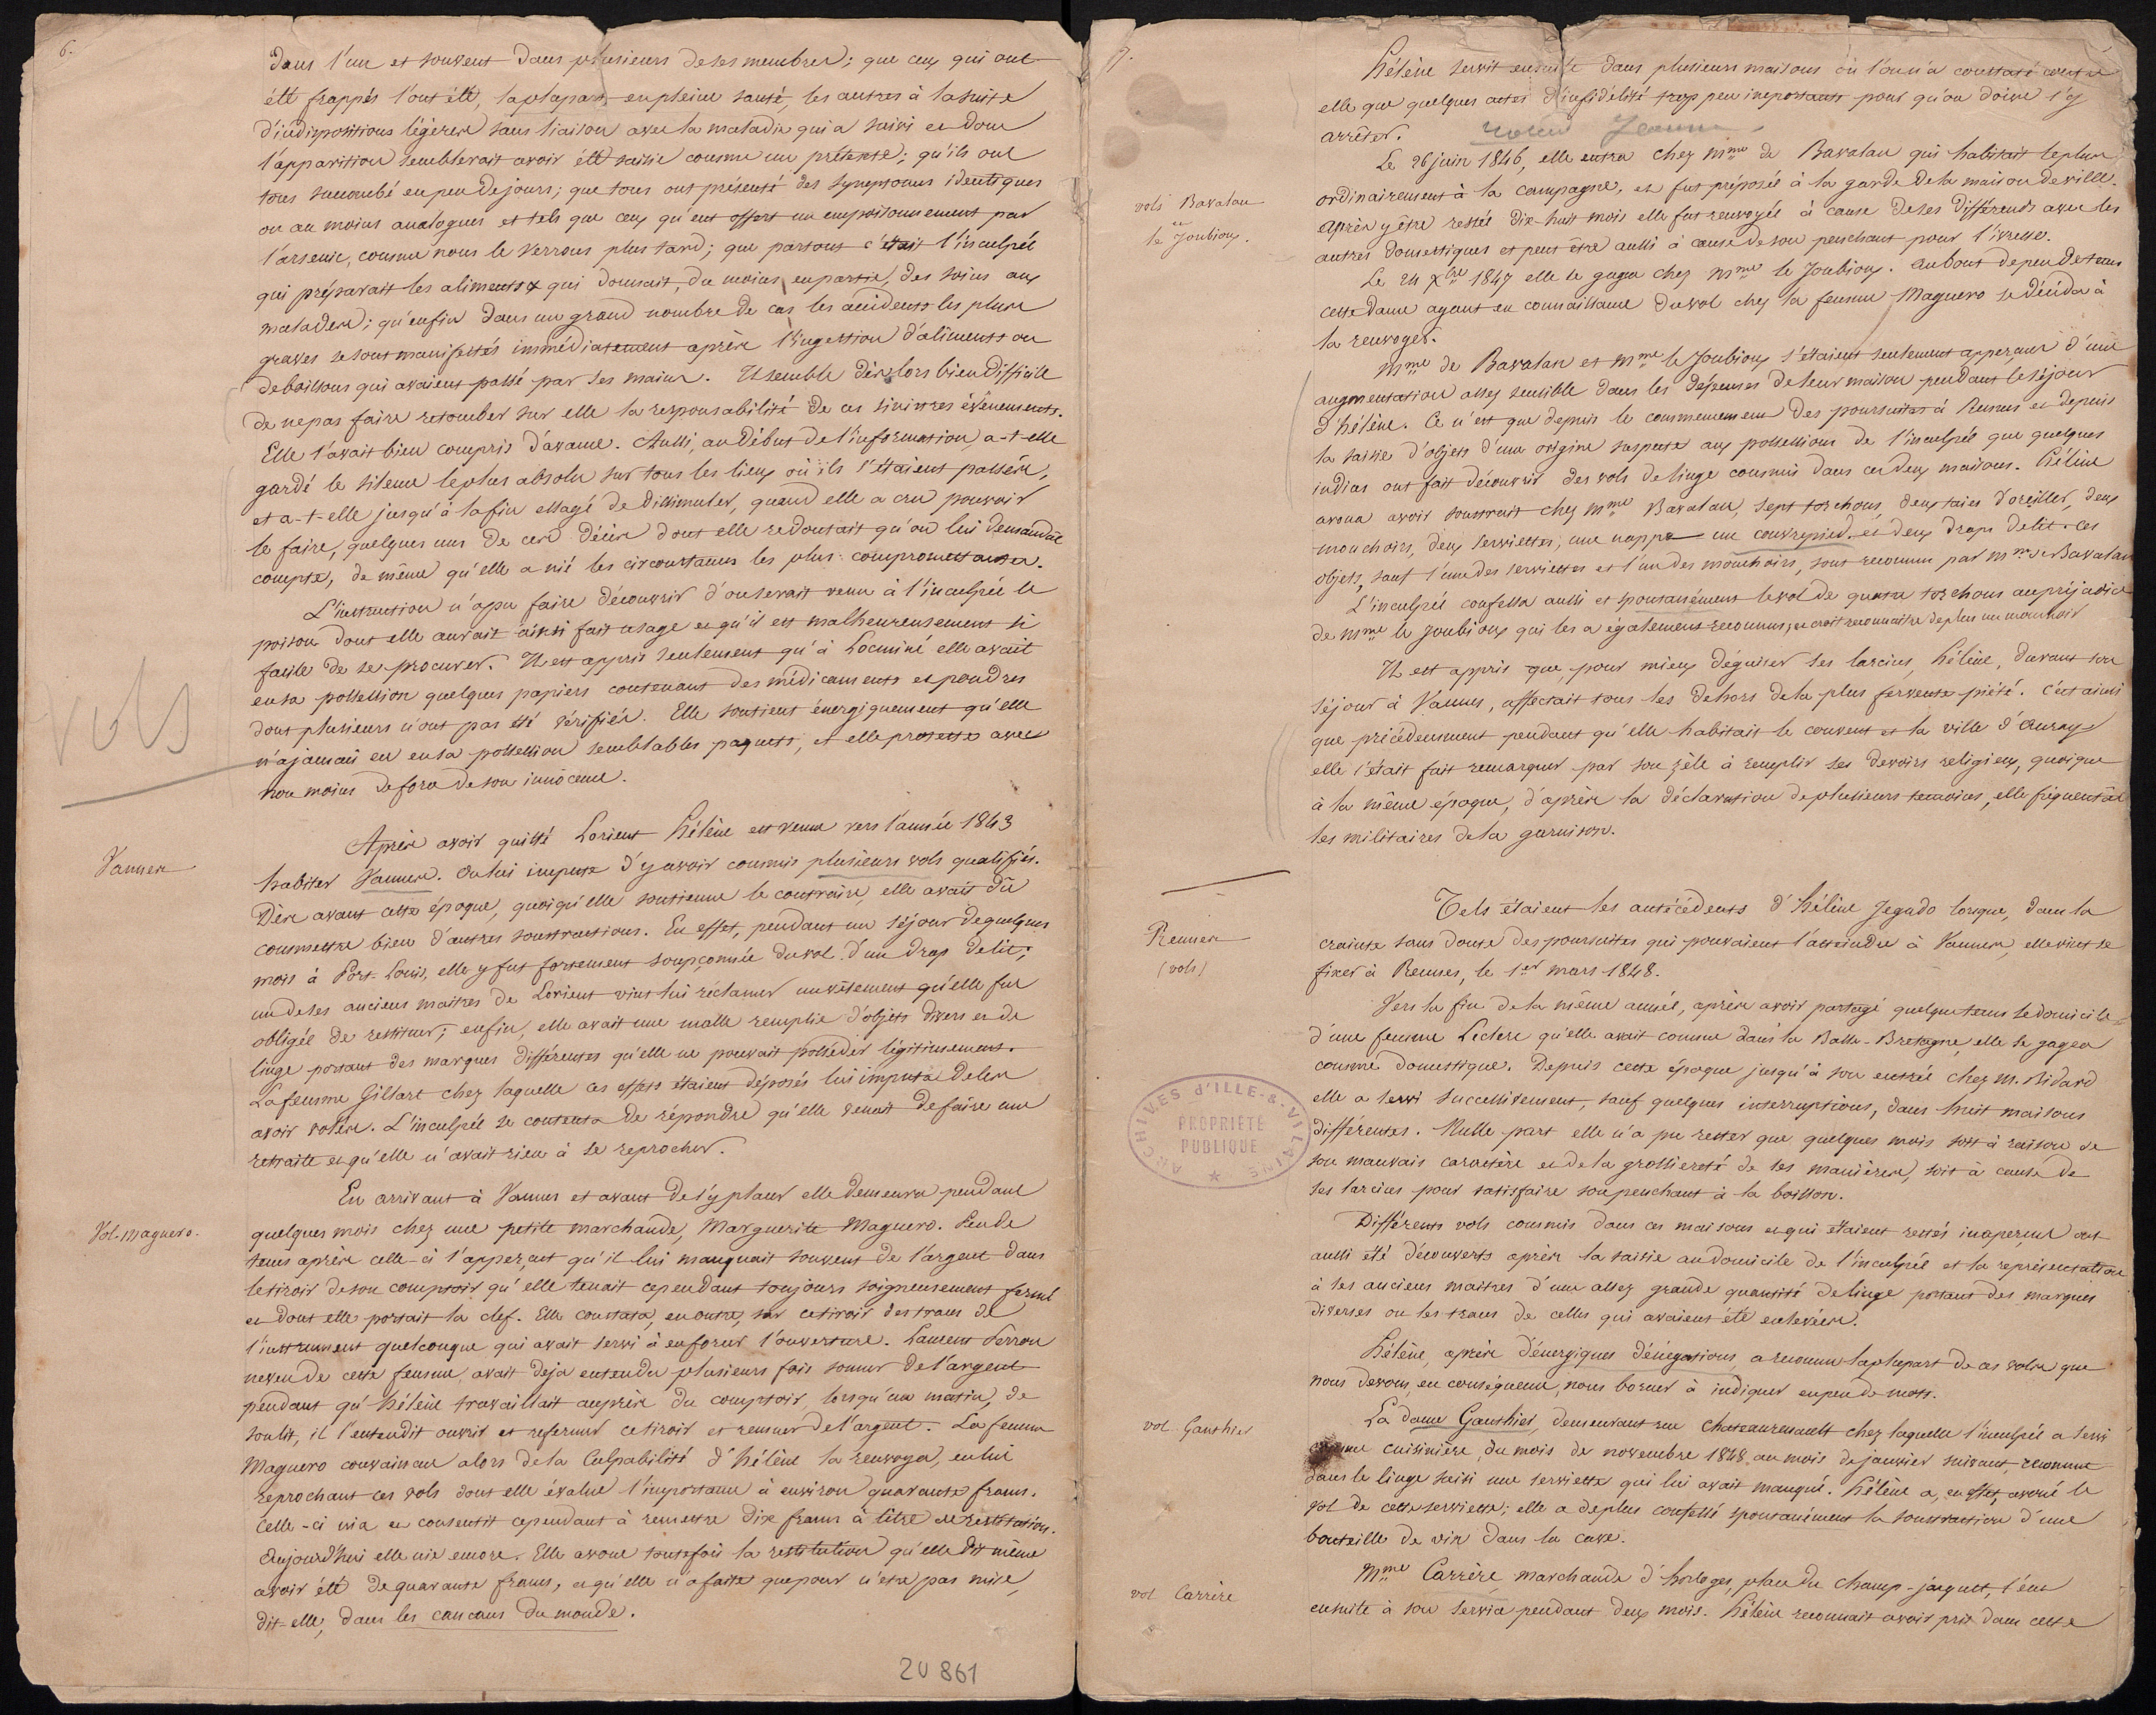 6.
dans l'un et souvent dans plusieurs de ses membres; que ceux qui ont
été frappés l'ont été, la plupart, en pleine santé, les autres à la suite
d'indispositions légères sans liaison avec la maladie qui a suivi et dont
l'apparition semblerait avoir été saisie comme un prétexte; qu'ils ont
tous succombé en peu de jours; que tous ont présenté des symptomes identiques
ou au moins analogues et tels que ceux qu'eut offert un empoisonnement par
l'arsenic, comme nous le verrons plus tard; que partout c'était l'inculpée
qui préparait les aliments & qui donnait, du moins en partie, des soins aux
malades; qu'enfin dans un grand nombre de cas les accidents les plus
graves se sont manifestés immédiatement après l'ingestion d'aliments ou
de boissons qui avaient passé par ses mains. Il semble dès lors bien difficile
de ne pas faire retomber sur elle la responsabilité de ces sinistres évènements.
Elle l'avait bien compris d'avance. Aussi, au début de l'information, a-t-elle
gardé le silence le plus absolu sur tous les lieux où ils s'étaient passés,
et a-t-elle jusqu'à la fin essayé de dissimuler, quand elle a cru pouvoir
le faire, quelques uns de ces décès dont elle redoutait qu'on lui demandât
compte, de même qu'elle a nié les circonstances les plus compromettantes.
L'instruction n'a pu faire découvrir d'où serait venu à l'inculpée le
poison dont elle aurait ainsi fait usage et qu'il est malheureusement si
facile de se procurer. Il est appris seulement qu'à Locminé elle avait
en sa possession quelques papiers contenant des médicaments et poudres
dont plusieurs n'ont pas été vérifiés. Elle soutient énergiquement qu'elle
n'a jamais eu en sa possession semblables paquets, et elle proteste avec
non moins de force de son innocence.
vols
Vannes
Après avoir quitté Lorient Hélène est venue vers l'année 1843
habiter Vannes. On lui impute d'y avoir commis plusieurs vols qualifiés.
Dès avant cette époque, quoiqu'elle soutienne le contraire, elle avait dû
commettre bien d'autres soustractions. En effet, pendant un séjour de quelques
mois à Port-Louis, elle y fut fortement soupçonnée du vol d'un drap de lit;
un de ses anciens maitres de Lorient vint lui réclamer un vêtement qu'elle fut
obligée de restituer; enfin, elle avait une malle remplie d'objets divers et de
linge portant des marques différentes qu'elle ne pouvait posséder légitimement.
La femme Gillart chez laquelle ces effets étaient déposés lui imputa de les
avoir volés. L'inculpée se contenta de répondre qu'elle venait de faire une
retraite et qu'elle n'avait rien à se reprocher.
Vol-Maguero.
En arrivant à Vannes et avant de s'y placer elle demeura pendant
quelques mois chez une petite marchande, Marguerite Maguero. Peu de
tems après celle-ci s'apperçut qu'il lui manquait souvent de l'argent dans
le tiroir de son comptoir qu'elle tenait cependant toujours soigneusement fermé
et dont elle portait la clef. Elle constata, en outre, sur ce tiroir des traces de
l'instrument quelconque qui avait servi à en forcer l'ouverture. Laurent Perron
neveu de cette femme, avait déja entendu plusieurs fois sonner de l'argent
pendant qu'Hélène travaillait auprès du comptoir, lorsqu'un matin, de
son lit, il l'entendit ouvrir et refermer ce tiroir et remuer de l'argent. La femme
Maguero convaincue alors de la culpabilité d'Hélène la renvoya, en lui
reprochant ces vols dont elle évalue l'importance à environ quarante francs.
Celle-ci nia et consentit cependant à remettre dix francs à titre de restitution.
Aujourd'hui elle nie encore. Elle avoue toutefois la restitution qu'elle dit même
avoir été de quarante francs, et qu'elle n'a faite que pour n'être pas mise,
dit-elle, dans les cancans du monde.
2U 861
7.
Hélène servit ensuite dans plusieurs maisons où l'on n'a constaté contre
elle que quelques actes d'infidélité trop peu importants pour qu'on doive s'y
arrêter.
vols Bavalan
et
le Joubioux.
Le 26 juin 1846, elle entra chez Mme de Bavalan qui habitait le plus
ordinairement à la campagne, et fut préposée à la garde de la maison de ville.
Après y être restée dix-huit mois elle fut renvoyée à cause de ses différends avec les
autres domestiques et peut être aussi à cause de son penchant pour l'ivresse.
Le 24 Xbre 1847 elle se gagea chez Mme le Joubioux. Au bout de peu de tems
cette dame ayant eu connaissance du vol chez la femme Maguero se décida à
la renvoyer.
Mme de Bavalan et Mme le Joubioux s'étaient seulement apperçues d'une
augmentation assez sensible dans les dépenses de leur maison pendant le séjour
d'hélène. Ce n'est que depuis le commencement des poursuites à Rennes et depuis
la saisie d'objets d'une origine suspecte aux possessions de l'inculpée que quelques
indices ont fait découvrir des vols de linge commis dans ces deux maisons. Hélène
avoua avoir soustrait chez Mme Bavalan, sept torchons, deux taies d'oreiller, deux
mouchoirs, deux serviettes, une nappe un couvrepied et deux draps de lit. Ces
objets, sauf l'une des serviettes et l'un des mouchoirs, sont reconnus par Mme de Bavalan
L'inculpée confessa aussi et spontanément le vol de quatre torchons au préjudice
de Mme le Joubioux qui les a également reconnus, et croit reconnaître de plus un mouchoir
Il est appris que, pour mieux déguiser ses larcins, hélène, durant son
séjour à Vannes, affectait tous les dehors de la plus fervente piété. C'est ainsi
que précédemment pendant qu'elle habitait le couvent et la ville d'Auray
elle s'était fait remarquer par son zèle à remplir ses devoirs religieux, quoique
à la même époque, d'après la déclaration de plusieurs témoins, elle fréquentât
les militaires de la garnison.
Rennes
(vols)
Tels étaient les antécédents d'hélène Jegado lorsque, dans la
crainte sans doute des poursuites qui pouvaient l'atteindre à Vannes, elle vint se
fixer à Rennes, le 1er mars 1848.
Vers la fin de la même année, après avoir partagé quelque tems le domicile
d'une femme Leclerc qu'elle avait connue dans la Basse-Bretagne, elle se gagea
comme domestique. Depuis cette époque jusqu'à son entrée chez M. Bidard
elle a servi successivement, sauf quelques interruptions, dans huit maisons
différentes. Nulle part elle n'a pu rester que quelques mois soit à raison de
son mauvais caractère et de la grossiereté de ses manières, soit à cause de
ses larcins pour satisfaire son penchant à la boisson.
ARCHIVES d'ILLE-&-VILAINE
PROPRIÉTÉ
PUBLIQUE
Différents vols commis dans ces maisons et qui étaient restés inaperçus ont
aussi été découverts après la saisie au domicile de l'inculpée et la représentation
à ses anciens maitres d'une assez grande quantité de linge portant des marques
diverses ou les traces de celles qui avaient été enlevées.
Hélène, après d'énergiques dénégations, a reconnu la plupart de ces vols que
nous devons, en conséquence, nous borner à indiquer en peu de mots.
vol Gauthier
La dame Gauthier, demeurant rue Chateaurenault chez laquelle l'inculpée a servi
comme cuisinière, du mois de novembre 1848, au mois de janvier suivant, reconnu
dans le linge saisi une serviette qui lui avait manqué. Hélène a, en effet, avoué le
vol de cette serviette; elle a de plus confessé spontanément la soustraction d'une
bouteille de vin dans la cave.
vol Carrère
Mme Carrère, marchande d'horloges, place du Champ-jacquet, l'eut
ensuite à son service pendant deux mois. Hélène reconnait avoir pris dans cette